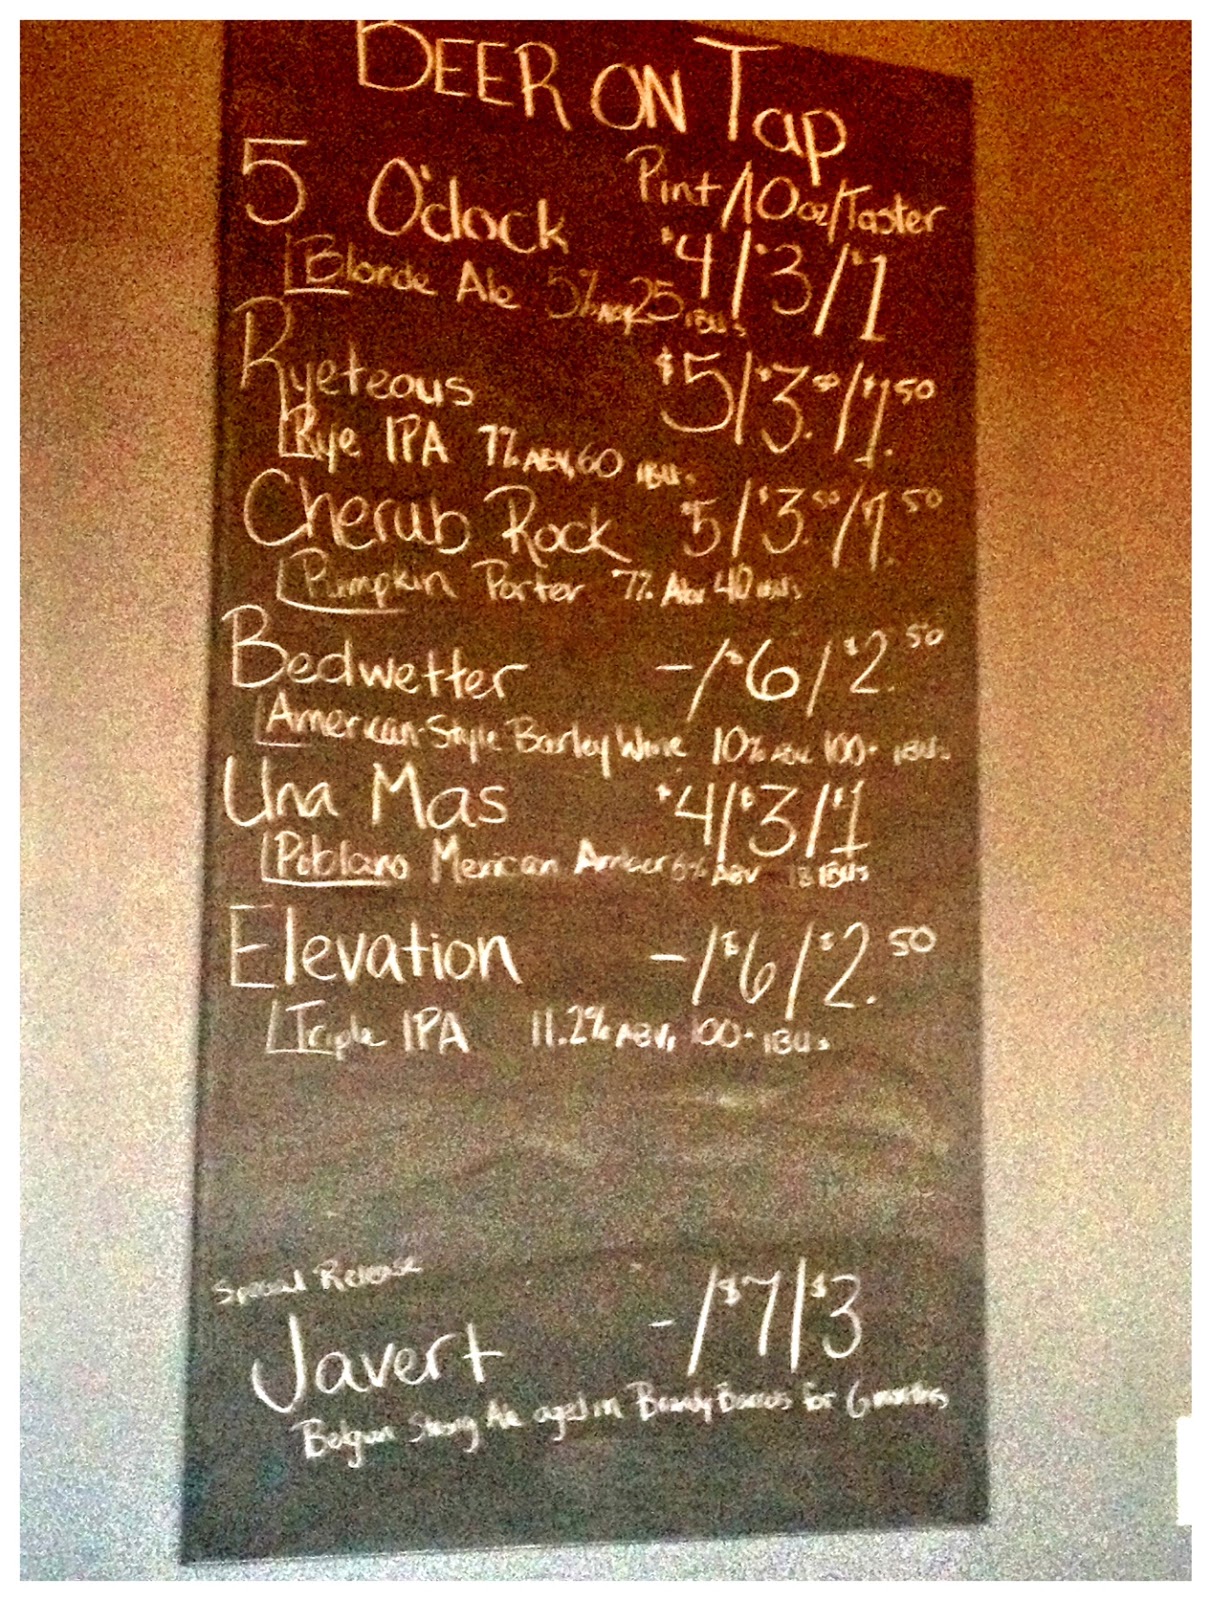 BEER ON Tap
Pint/10oz/Taster
5 O'clock $4/$3/$1
Blonde Ale 5% ABV 25 IBUs
Ryeteous $5/$3.50/$1.50
Rye IPA 7% ABV, 60 IBUs
Cherub Rock $5/$3.50/$1.50
Pumpkin Porter 7% ABV 40 IBUs
Bedwetter -/$6/$2.50
American-Style Barley Wine 10% ABV 100+ IBUs
Una Mas $4/$3/$1
Poblano Mexican Amber 6% ABV 18 IBUs
Elevation -/$6/$2.50
Triple IPA 11.2% ABV, 100+ IBUs
Special Release
Javert -/$7/$3
Belgian Strong Ale aged in Brandy Barrels for 6 months